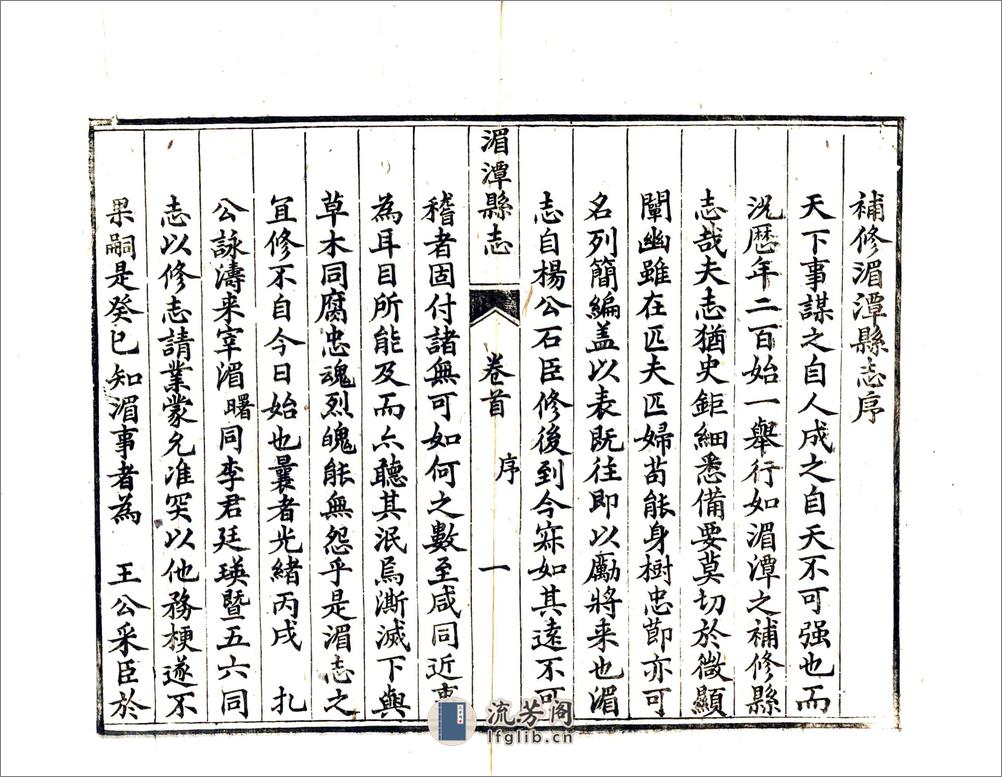 補修湄潭縣志序
天下事謀之自人成之自天不可强也而
況歷年二百始一舉行如湄潭之補修縣
志哉夫志猶史鉅細悉備要莫切於微顯
闡幽雖在匹夫匹婦苟能身樹忠節亦可
名列簡編盖以表既往即以勵將来也湄
志自楊公石臣修後到今寂如其遠不可
湄潭縣志
卷首 序 一
稽者固付諸無可如何之數至咸同近事
為耳目所能及而亦聽其泯焉澌滅下與
草木同腐忠魂烈魄能無怨乎是湄志之
宜修不自今日始也曩者光緒丙戌 扎
公詠濤来宰湄曙同李君廷瑛暨五六同
志以修志請業蒙允准突以他務梗遂不
果嗣是癸巳知湄事者為 王公采臣於
流芳閣
lfglib.cn